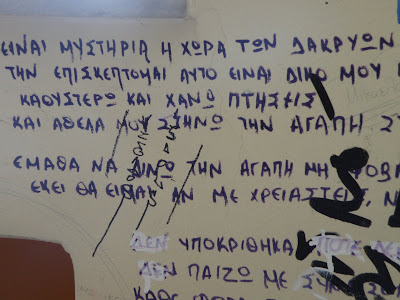 ΕΙΝΑΙ ΜΥΣΤΗΡΙΑ Η ΧΩΡΑ ΤΩΝ ΔΑΚΡΥΩΝ
ΤΗΝ ΕΠΙΣΚΕΠΤΟΜΑΙ ΑΥΤΟ ΕΙΝΑΙ ΔΙΚΟ ΜΟΥ
ΚΑΘΥΣΤΕΡΩ ΚΑΙ ΧΑΝΩ ΠΤΗΣΕΙΣ
ΚΑΙ ΑΘΕΛΑ ΜΟΥ ΣΤΗΝΩ ΤΗΝ ΑΓΑΠΗ ΣΤ
ΕΜΑΘΑ ΝΑ ΤΗΝ ΑΓΑΠΗ ΜΗ
ΕΚΕΙ ΘΑ ΕΙΜΑΙ ΑΝ ΜΕ ΧΡΕΙΑΣΤΕΙΣ, Ν
ΔΕΝ ΥΠΟΚΡΙΘΗΚΑ ΠΟΤΕ ΔΕ
ΔΕΝ ΠΑΙΖΩ ΜΕ
ΚΑΘΕ